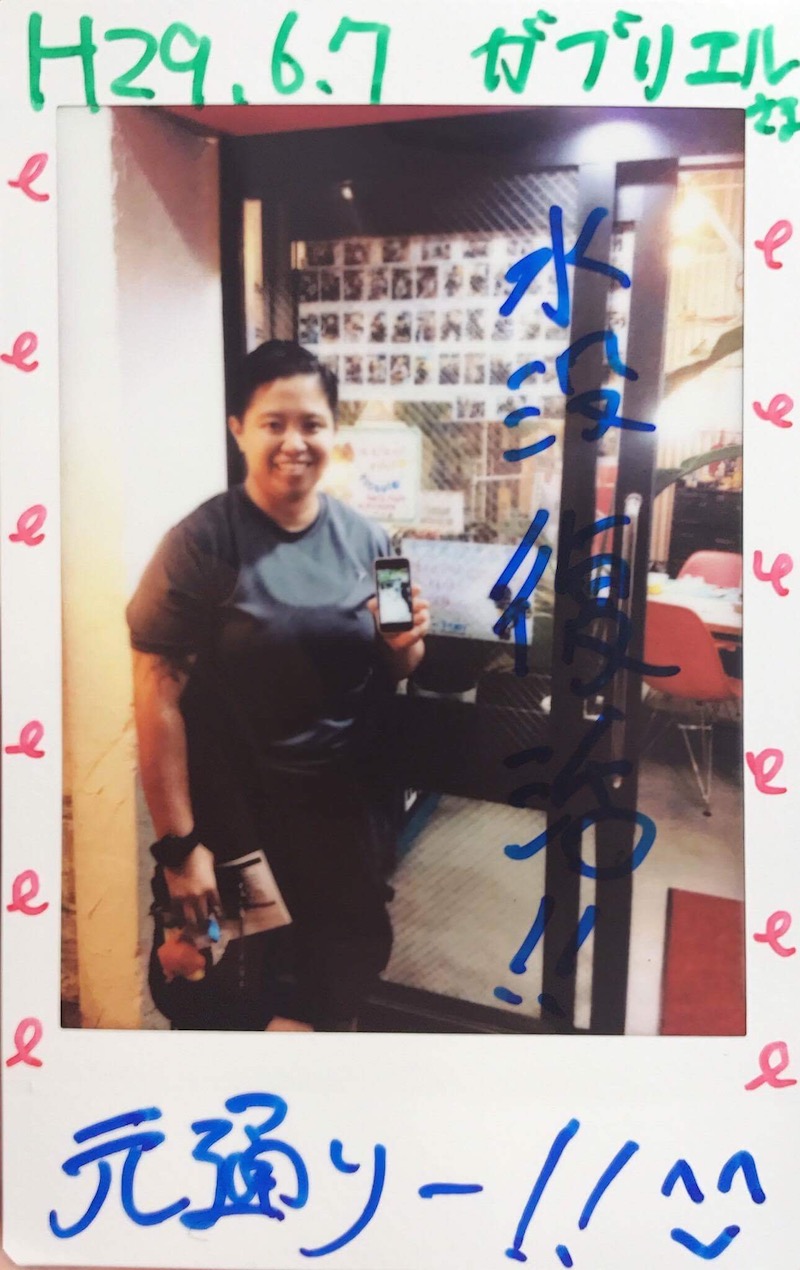 H29.6.7 ガブリエル
さま
水没 復活!!
元通りー!! ^^